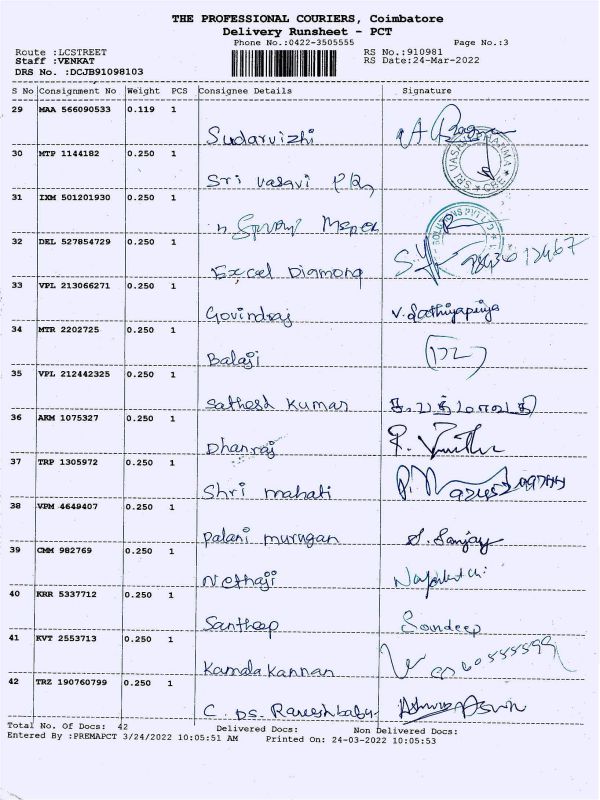 THE PROFESSIONAL COURIERS, Coimbatore
Delivery Runsheet - PCT
Phone No.:0422-3505555 Page No.:3
Route :LCSTREET RS No.:910981
Staff :VENKAT RS Date:24-Mar-2022
DRS No. :DCJB91098103
S No Consignment No Weight PCS Consignee Details Signature
29 MAA 566090533 0.119 1
Sudarvizhi
30 MTP 1144182 0.250 1
Sri vasavi
31 IXM 501201930 0.250 1
32 DEL 527854729 0.250 1
Excel Diamond
33 VPL 213066271 0.250 1
Govindraj V. Sathiyapriya
34 MTR 2202725 0.250 1
Balaji
35 VPL 212442325 0.250 1
Sathesh Kumar
36 AKM 1075327 0.250 1
Dhanraj
37 TRP 1305972 0.250 1
Shri mahati
38 VPM 4649407 0.250 1
Palani murugan S. Sanjay
39 CMM 982769 0.250 1
Nethaji
40 KRR 5337712 0.250 1
Santheep Sandeep
41 KVT 2553713 0.250 1
Kamala Kannan
42 TRZ 190760799 0.250 1
C. DS. Rameshbabu
Total No. Of Docs: 42 Delivered Docs: Non Delivered Docs:
Entered By :PREMAPCT 3/24/2022 10:05:51 AM Printed On: 24-03-2022 10:05:53